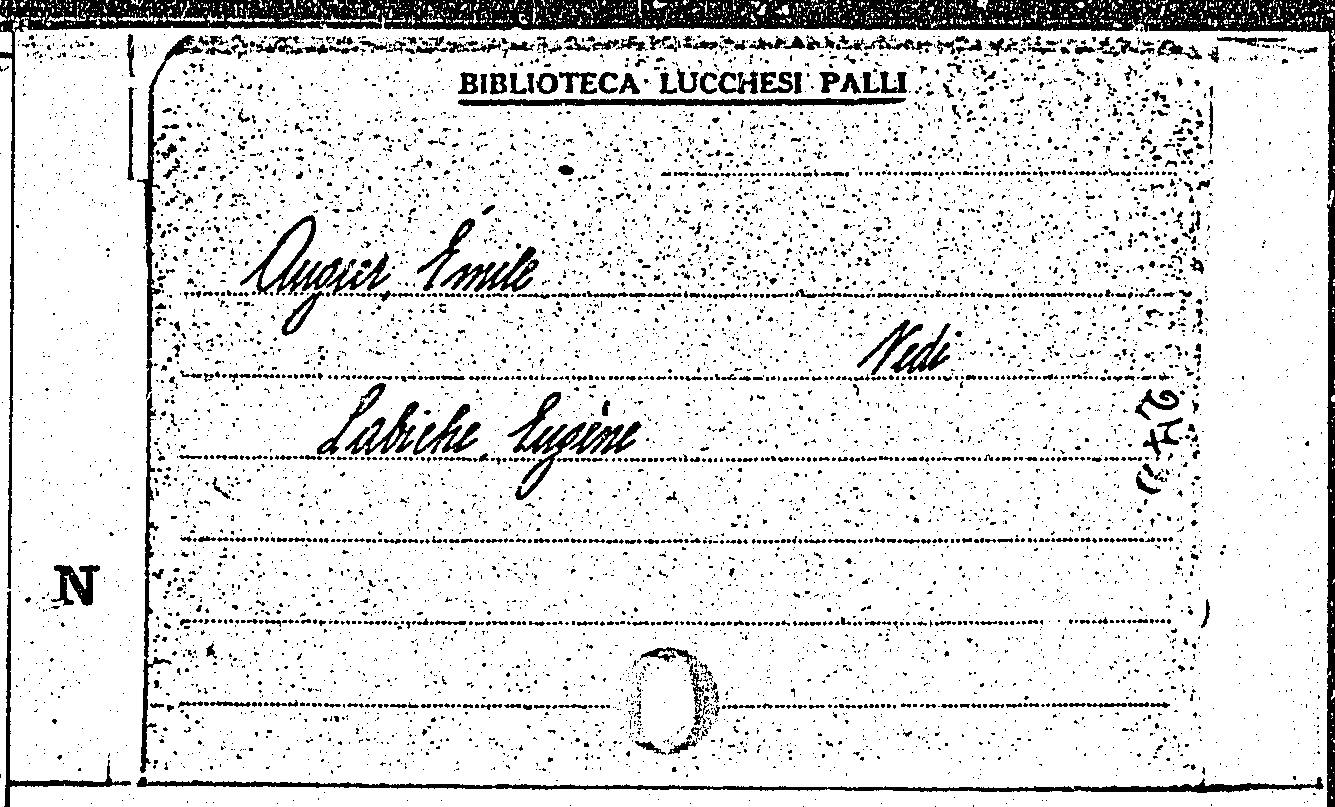 BIBLIOTECA LUCCHESI PALLI
Augier, Émile
Vedi
Labiche, Eugène
N